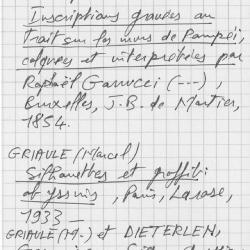 Inscriptions gravées au
trait sur les murs de Pompéi,
calquées et interprétées par
Raphaël Garrucci (---)
Bruxelles, J.B. de Mortier,
1854.
GRIAULE (Marcel)
Silhouettes et graffiti
abyssins, Paris, Larose,
1933 -
GRIAULE (M.) et DIETERLEN,